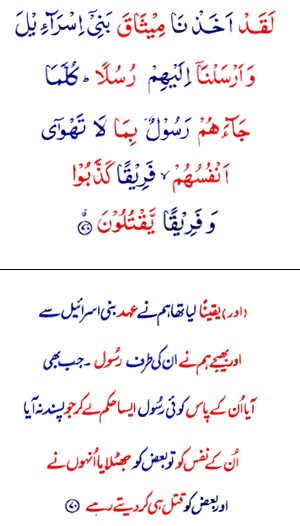 لَقَدْ اَخَذْنَا مِیْثَاقَ بَنِیْۤ اِسْرَآءِیْلَ
وَ اَرْسَلْنَاۤ اِلَیْهِمْ رُسُلًا ؕ كُلَّمَا
جَآءَهُمْ رَسُوْلٌۢ بِمَا لَا تَهْوٰۤى
اَنْفُسُهُمْ ۙ فَرِیْقًا كَذَّبُوْا
وَ فَرِیْقًا یَّقْتُلُوْنَ ﴿۷۰﴾
(اور) یقیناً لیا تھا ہم نے عہد بنی اسرائیل سے
اور بھیجے ہم نے ان کی طرف رسُول ۔ جب بھی
آیا اُن کے پاس کوئی رسُول ایسا حکم لے کر جو پسند نہ آیا
اُن کے نفس کو تو بعض کو جھٹلایا اُنہوں نے
اور بعض کو قتل ہی کر دیتے رہے ﴿۷۰﴾